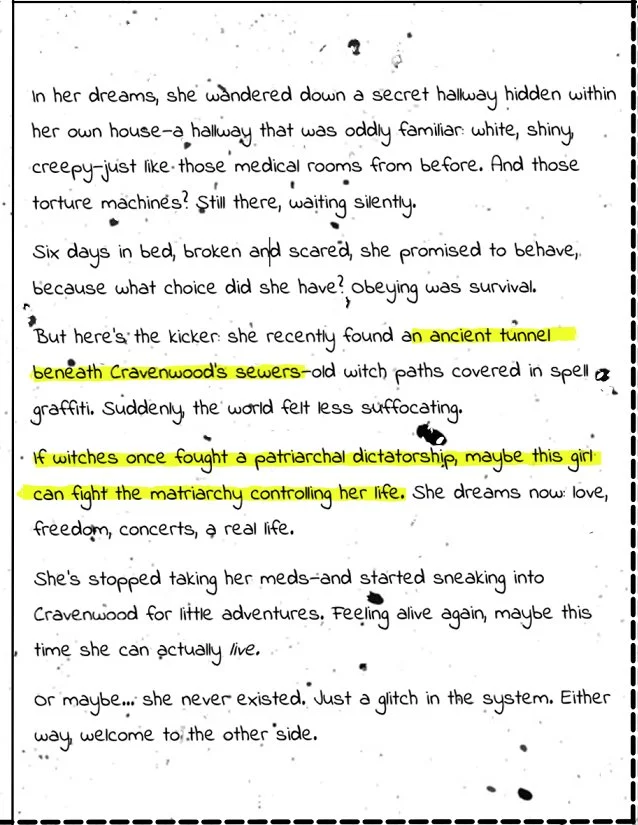 In her dreams, she wandered down a secret hallway hidden within
her own house-a hallway that was oddly familiar: white, shiny,
creepy-just like those medical rooms from before. And those
torture machines? Still there, waiting silently.
Six days in bed, broken and scared, she promised to behave,
because what choice did she have? Obeying was survival.
But here's the kicker: she recently found an ancient tunnel
beneath Cravenwood's sewers-old witch paths covered in spell
graffiti. Suddenly, the world felt less suffocating.
If witches once fought a patriarchal dictatorship, maybe this girl
can fight the matriarchy controlling her life. She dreams now: love,
freedom, concerts, a real life.
She's stopped taking her meds-and started sneaking into
Cravenwood for little adventures. Feeling alive again, maybe this
time she can actually live.
Or maybe... she never existed. Just a glitch in the system. Either
way, welcome to the other side.